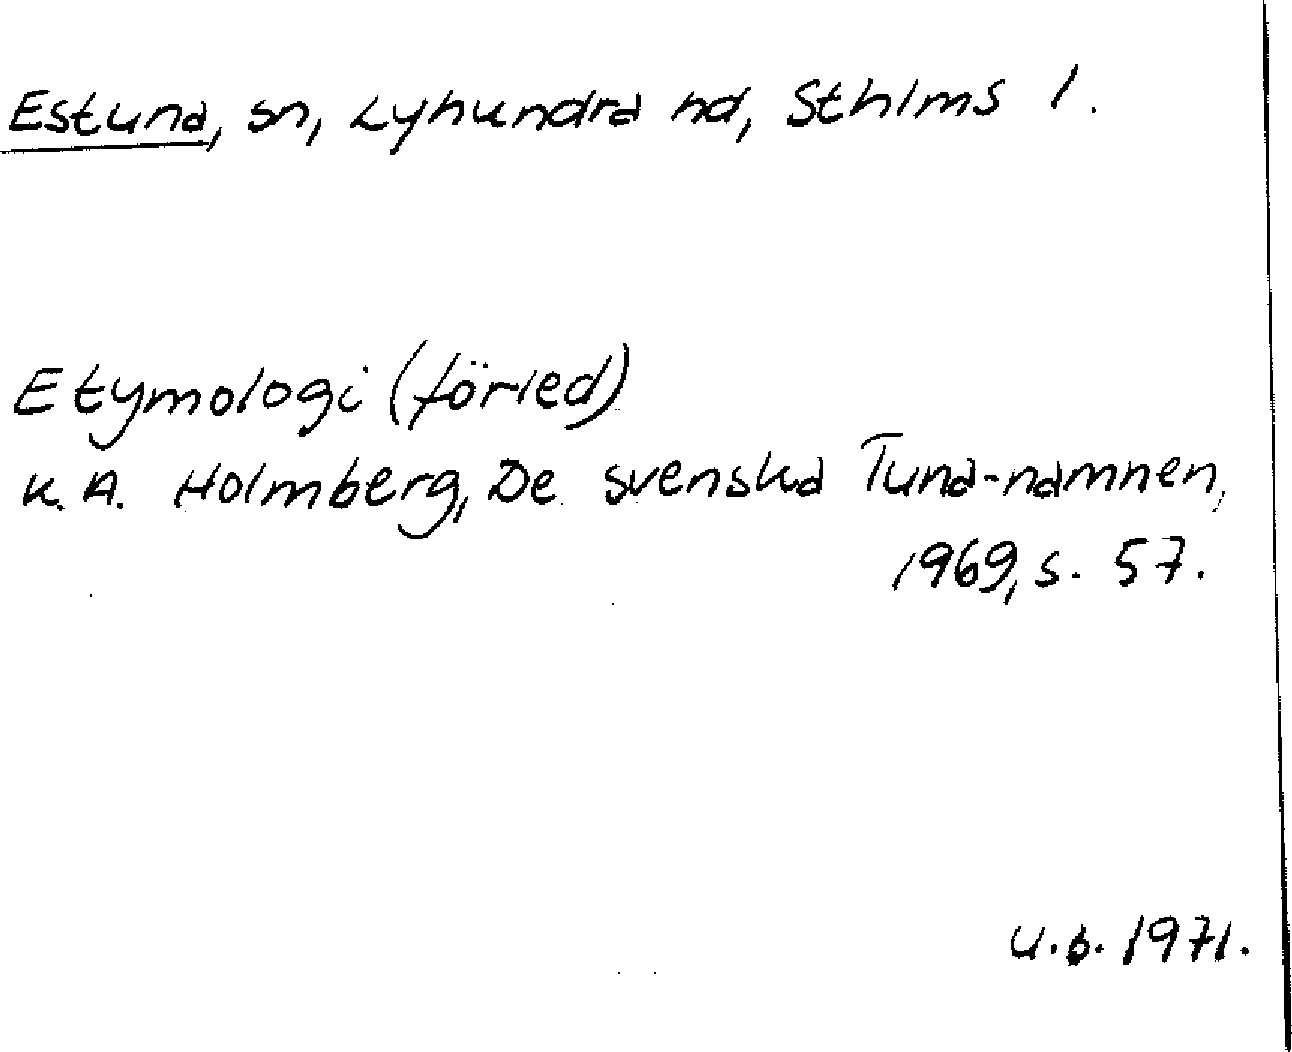 Estuna, sn, Lyhundra hd, Sthlms l.
Etymologi (förled)
K.A. Holmberg, De svenska Tuna-namnen,
1969, s. 57.
U.B. 1971.